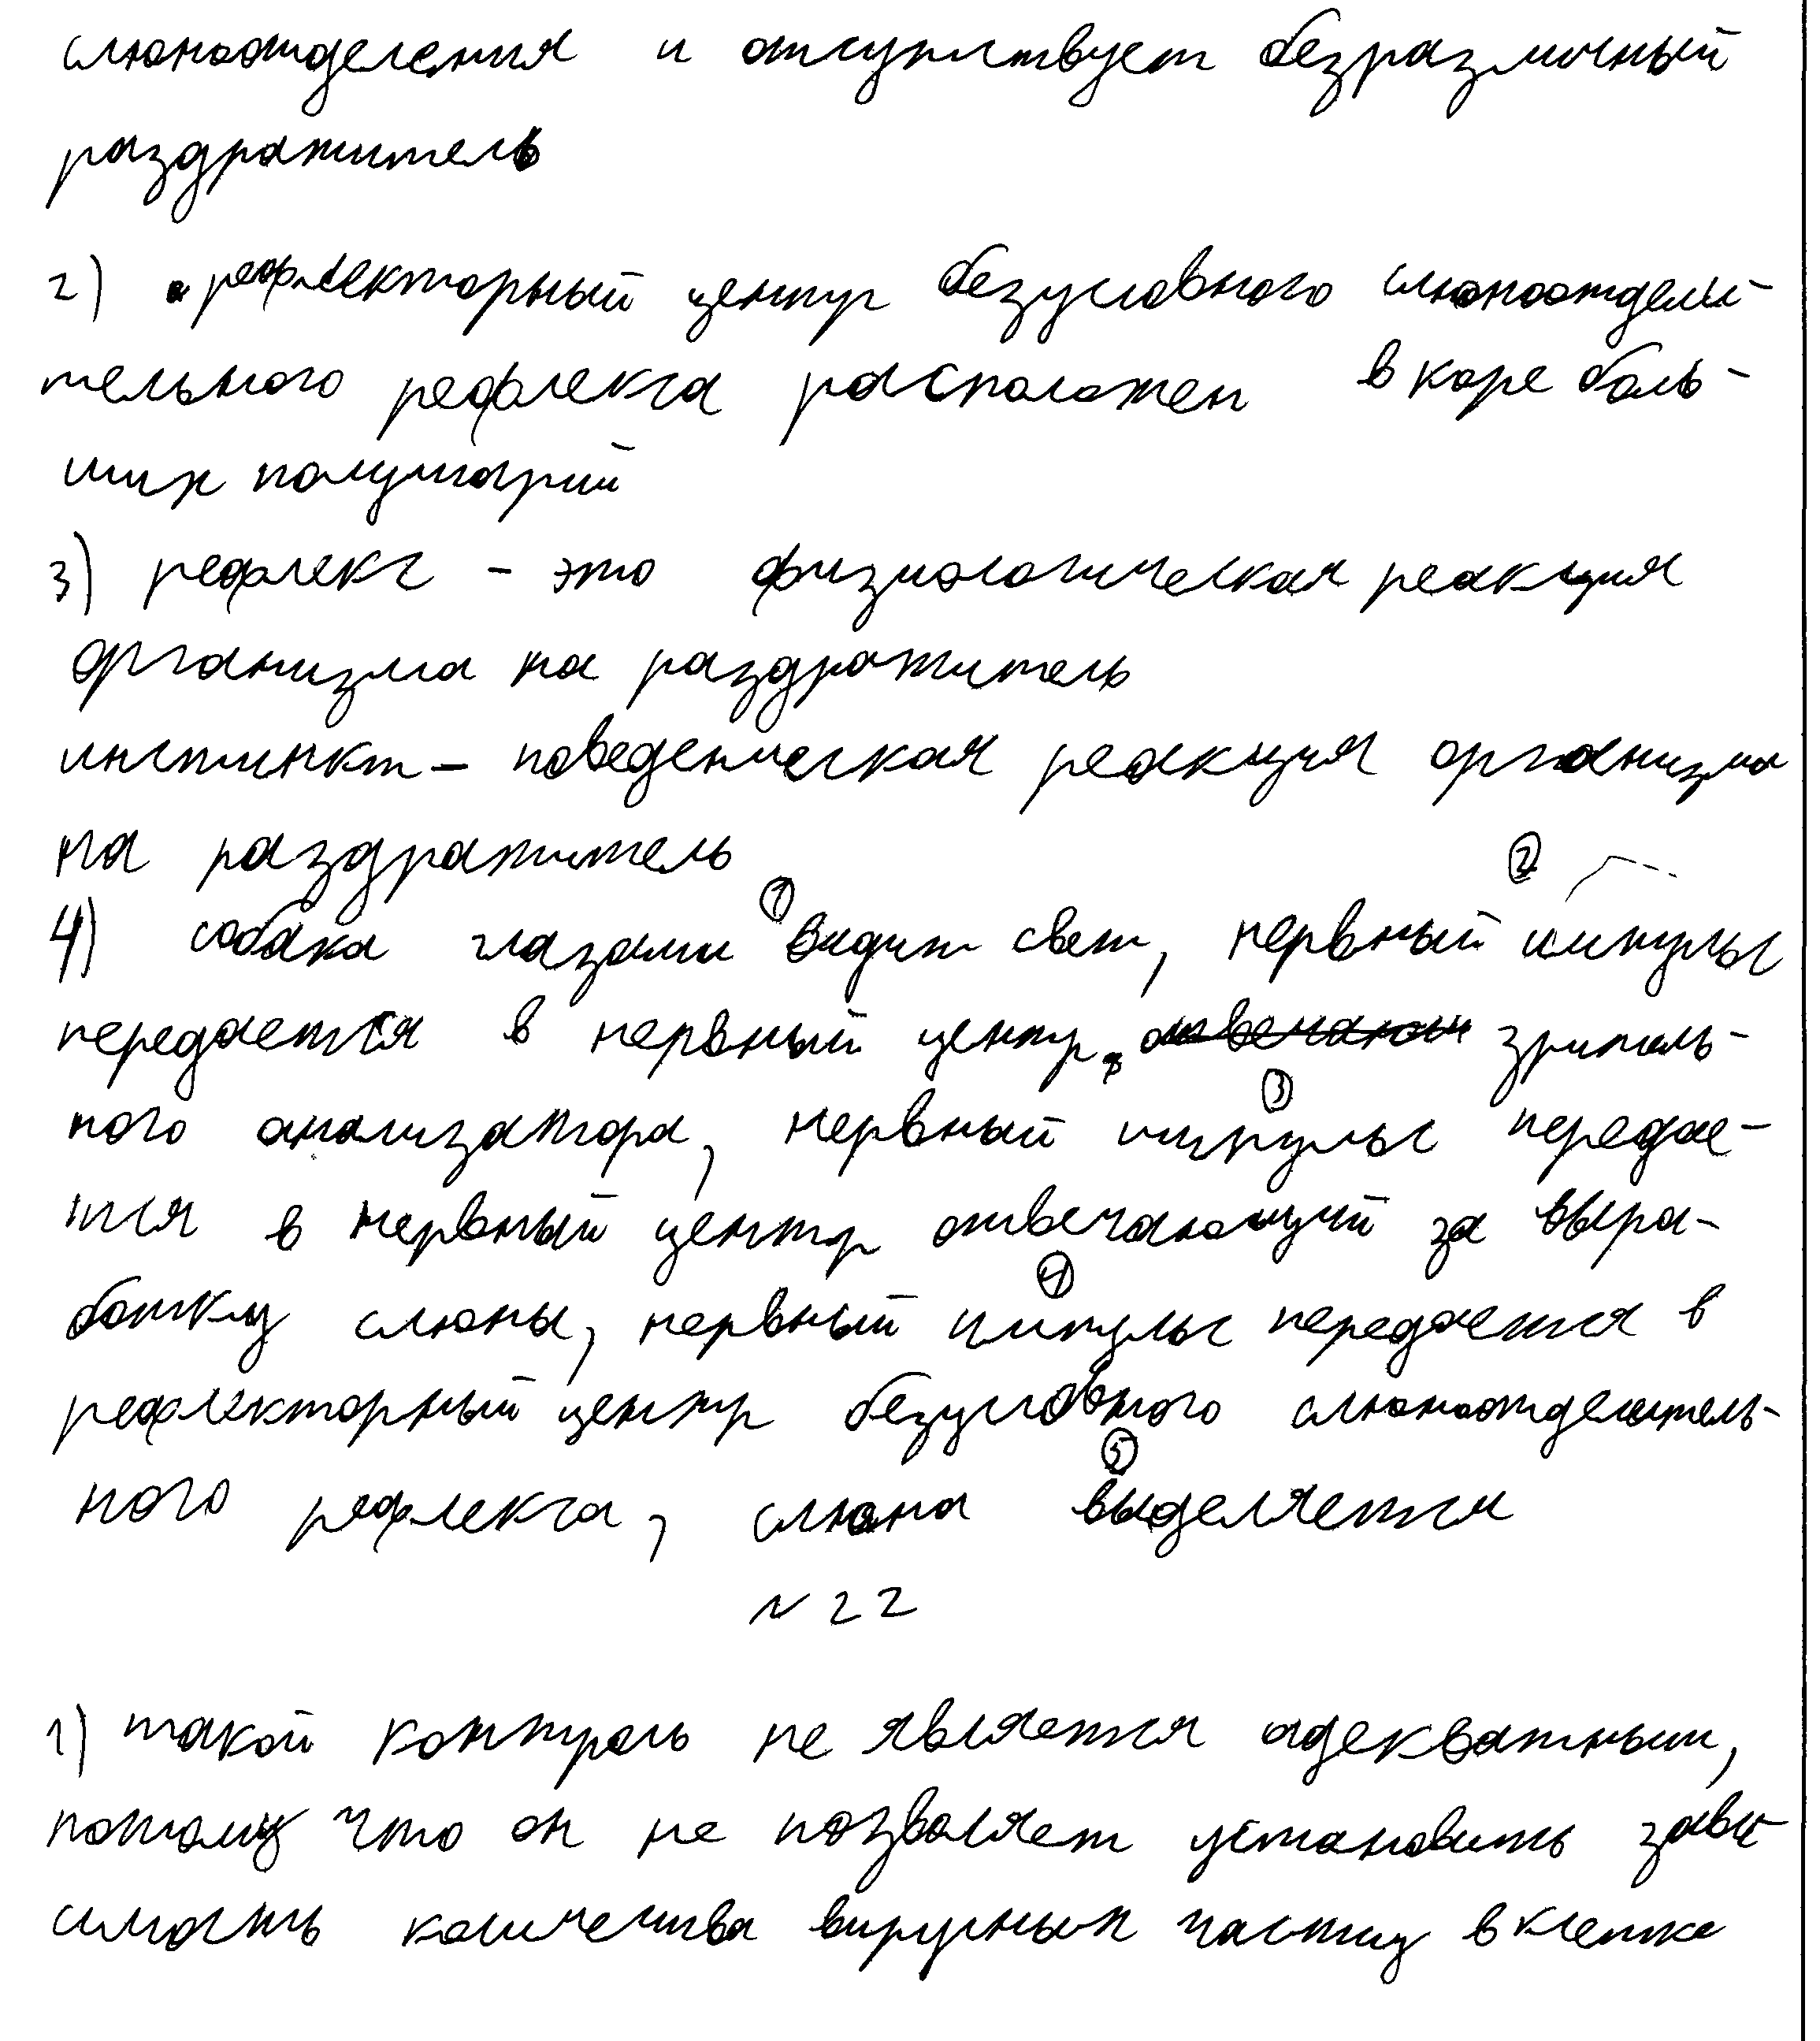 слюноотделения и отсутствует безразличный
раздражитель
2) рефлекторный центр безусловного слюноотдели-
тельного рефлекса расположен в коре боль-
ших полушарий
3) рефлекс - это физиологическая реакция
организма на раздражитель
инстинкт - поведенческая реакция организма
на раздражитель
4) собака глазами ① видит свет, нервный ② импульс
передается в нервный центр зритель-
ного анализатора, нервный ③ импульс передае-
тся в нервный центр отвечающий за выра-
ботку слюны, нервный ④ импульс передается в
рефлекторный центр безусловного слюноотделитель-
ного рефлекса, слюна ⑤ выделяется
N 22
1) такой контроль не является адекватным,
потому что он не позволяет установить зави
симость количества вирусных частиц в клетке